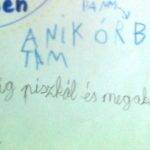 en
ANIKÓRB
TAM
ig piszkál és megak